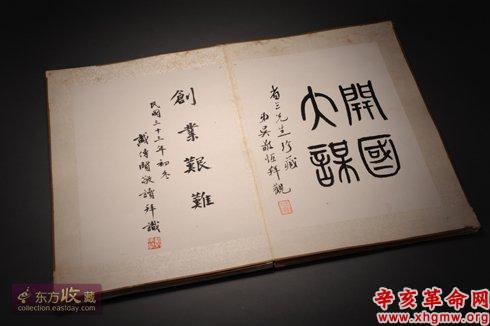 開國
大謀
省三先生珍藏
弟吳敬恆拜觀
創業艱難
民國三十三年初冬
戴傳賢敬讀拜識
东方收藏
collection.eastday.com
辛亥革命网
www.xhgmw.org